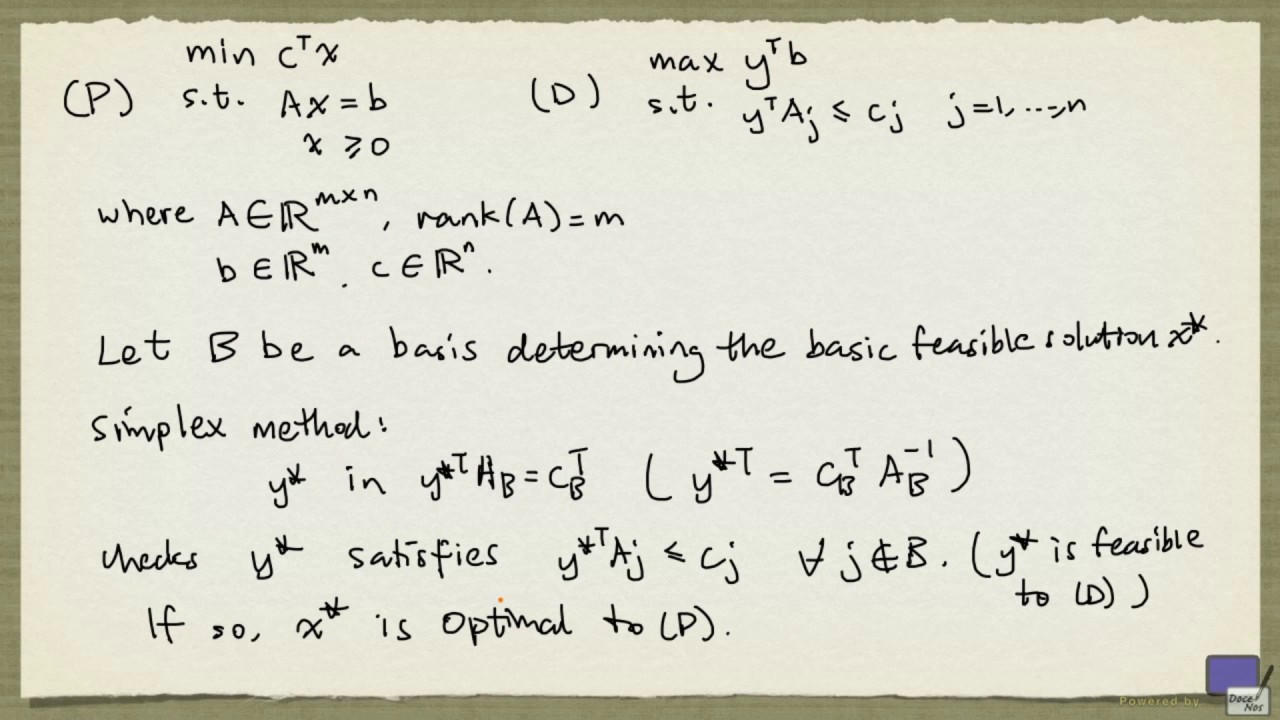 min cᵀx
(P) s.t. Ax = b
x ≥ 0
(D) max yᵀb
s.t. yᵀAⱼ ≤ cⱼ j=1, ..., n
where A ∈ ℝᵐˣⁿ, rank(A) = m
b ∈ ℝᵐ. c ∈ ℝⁿ.
Let B be a basis determining the basic feasible solution x*.
Simplex method:
y* in y*ᵀA_B = c_Bᵀ ( y*ᵀ = c_Bᵀ A_B⁻¹ )
Checks y* satisfies y*ᵀAⱼ ≤ cⱼ ∀ j ∉ B. (y* is feasible
to (D) )
If so, x* is optimal to (P).
Powered by
Doce
Nos